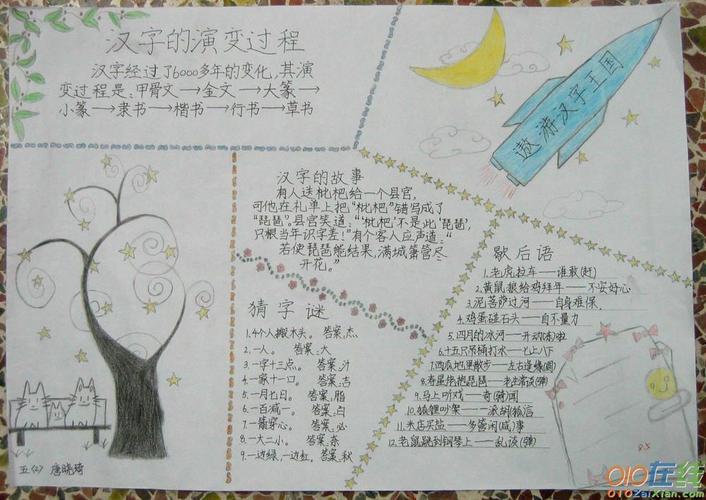 汉字的演变过程
汉字经过了6000多年的变化,其演
变过程是:甲骨文→金文→大篆→
小篆→隶书→楷书→行书→草书
遨游汉字王国
汉字的故事
有人送枇杷给一个县官,
可他在礼单上把“枇杷”错写成了
“琵琶”。县官笑道:“‘枇杷’不是此‘琵琶’,
只恨当年识字差!”有个客人应声道:“
若使琵琶能结果,满城箫管尽
开花。”
猜字谜
1.4个人搬木头。 答案:杰
2.一人。 答案:大
3.一字十三点。 答案:汁
4.一家十一口。 答案:吉
5.一月七日。 答案:脂
6.一百减一。 答案:白
7.一箭穿心。 答案:必
8.一大二小。 答案:奈
9.一边绿,一边红。 答案:秋
歇后语
1.老虎拉车——谁敢(赶)
2.黄鼠狼给鸡拜年——不安好心
3.泥菩萨过河——自身难保
4.鸡蛋碰石头——自不量力
5.四月的冰河——开动(冻)啦
6.十五只吊桶打水——七上八下
7.西瓜地里散步——左右逢缘(圆)
8.寿星抱琵琶——老生常谈(弹)
9.马上听戏——奇(骑)闻
10.狐狸吵架——一派胡(狐)言
11.米店买盐——多管闲(咸)事
12.老鼠跳到钢琴上——乱谈(弹)
五(2) 唐晓琦
95
010在线
010ZaiXian.com